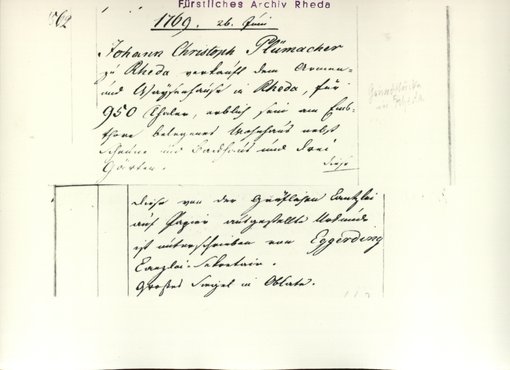 Fürstliches Archiv Rheda
1769. 26. Juni
Johann Christoph Plümacher
zu Rheda verkauft dem Armen-
und Waysenhause in Rheda, für
950 Thaler, erblich sein am Ems-
thore belegenes Wohnhaus nebst
Scheune und Backhaus und drei
Gärten.
diese
diese von der Gräflichen Canzlei
auf Papier ausgestellte Urkunde
ist unterschrieben von Eggerding
Canzlei-Sekretair.
Großes Siegel in Oblate.